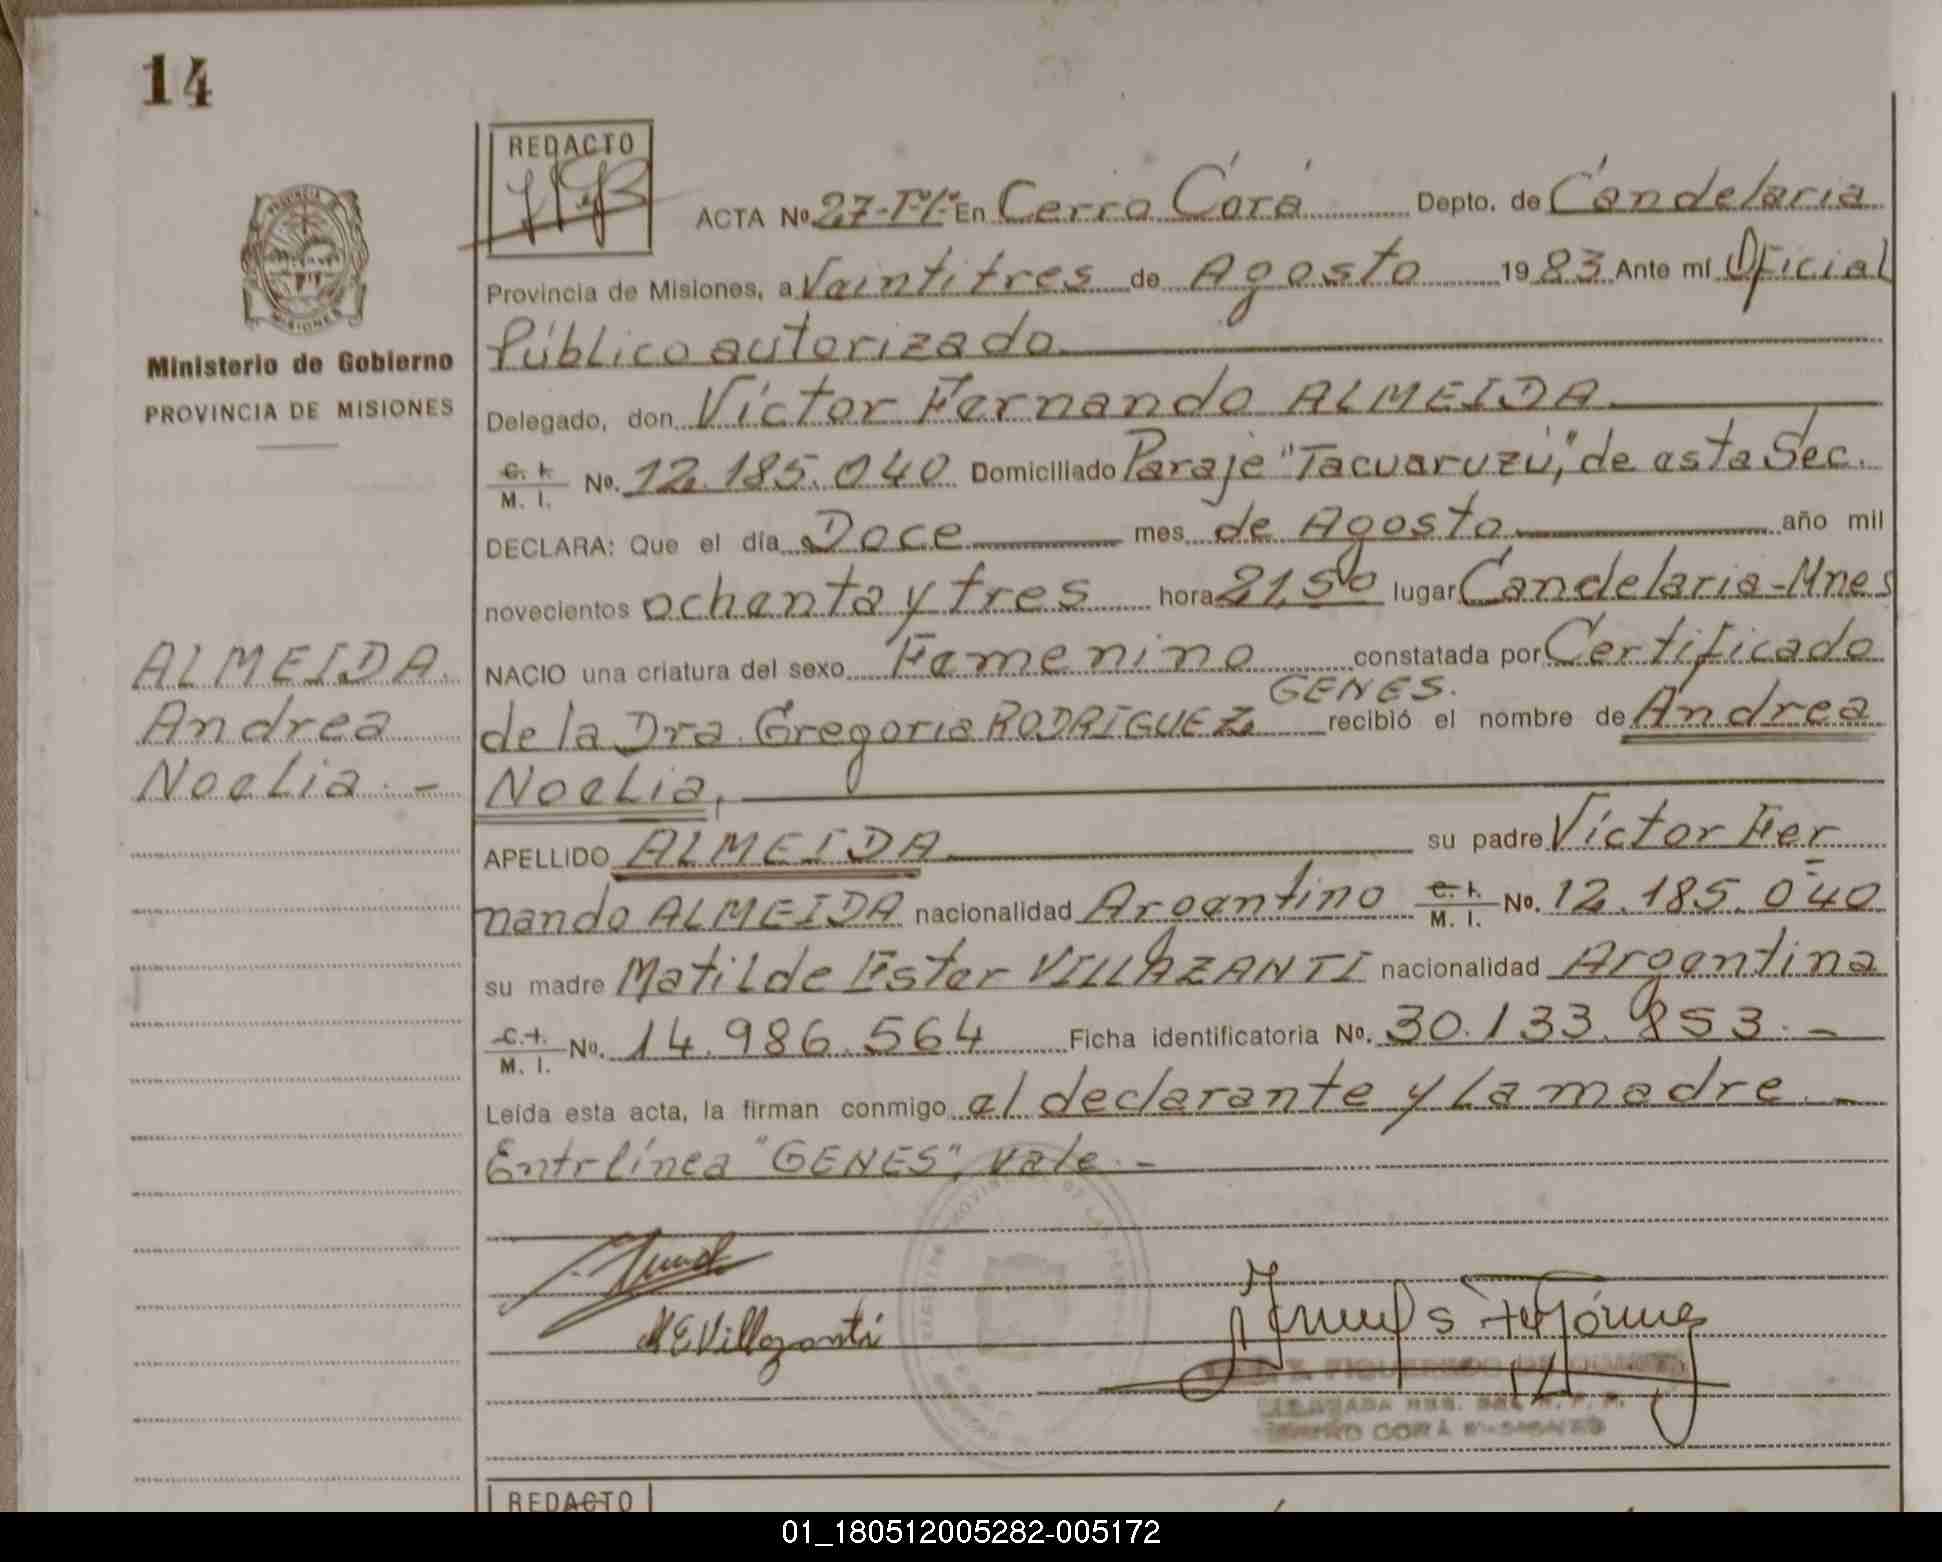 14
REDACTO
ACTA Nº 27-Tº1º En Cerro Corá Depto. de Candelaria
Provincia de Misiones, a Veintitres de Agosto 1983 Ante mí Oficial
Público autorizado
Ministerio de Gobierno
PROVINCIA DE MISIONES
Delegado, don Víctor Fernando ALMEIDA
C. I. / M. I. Nº. 12.185.040 Domiciliado Paraje "Tacuaruzú", de esta Sec.
DECLARA: Que el día Doce mes de Agosto año mil
novecientos ochenta y tres hora 21,50 lugar Candelaria-Mnes
ALMEIDA
Andrea
Noelia.-
NACIO una criatura del sexo Femenino constatada por Certificado
GENES.
de la Dra. Gregoria RODRIGUEZ recibió el nombre de Andrea
Noelia,
APELLIDO ALMEIDA su padre Víctor Fer
nando ALMEIDA nacionalidad Argentino C. I. / M. I. Nº. 12.185.040
su madre Matilde Ester VILLAZANTI nacionalidad Argentina
C. I. / M. I. Nº. 14.986.564 Ficha identificatoria Nº. 30.133.853.-
Leída esta acta, la firman conmigo el declarante y la madre.-
Entrlínea "GENES", vale.-
M E Villazanti
CERRO CORÁ MISIONES
REDACTO
01_180512005282-005172